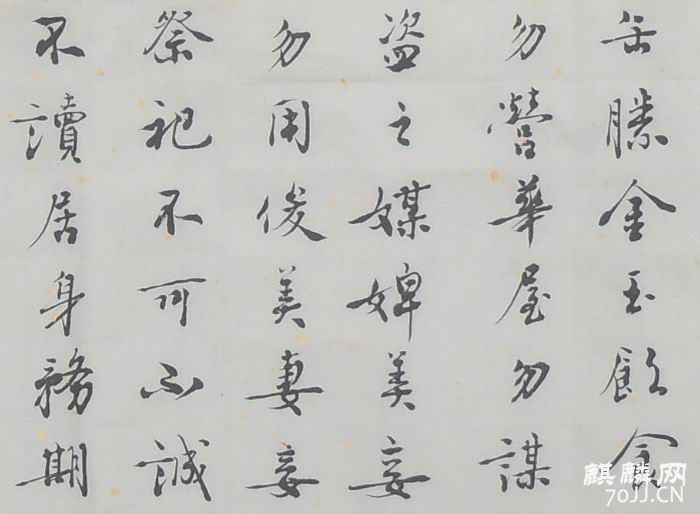 缶勝金玉飲食
勿營華屋勿謀
盗之媒婢美妾
勿用俊美妻妾
祭祀不可不誠
不讀居身務期
麒麟网
70JJ.CN